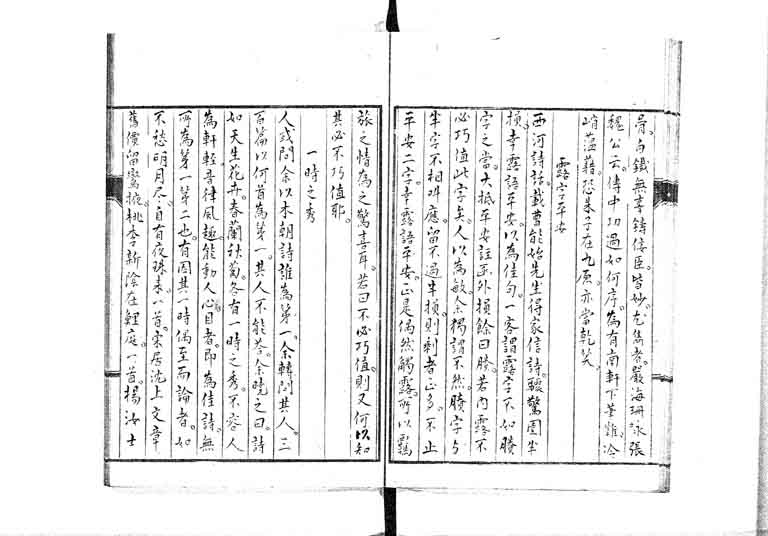 骨。白鐵無辜鑄佞臣。皆妙。尤雋者。嚴海珊詠張
魏公云。傳中功過如何序。為有南軒下筆難。冷
峭蘊藉。恐朱子在九原。亦當乾笑。
露字平安
西河詩話。載曹能始先生得家信詩。驟驚函半
損。幸露語平安。以為佳句。一客謂露字不如賸
字之當。大抵平安註函外。損餘曰賸。若內露。不
必巧值此字矣。人以為敏。余獨謂不然。賸字與
半字不相呼應。留不過半損。則剩者正多。不止
平安二字。幸露語平安。正是偶然觸露。所以羈
旅之情。為之驚喜耳。若曰不必巧值。則又何以知
其必不巧值耶。
一時之秀
人或問余以本朝詩誰為第一。余轉問其人。三
百篇以何首為第一。其人不能答。余曉之曰。詩
如天生花卉。春蘭秋菊。各有一時之秀。不容人
為軒輊。音律風趣。能動人心目者。即為佳詩。無
所為第一第二也。有因其一時偶至而論者。如
不愁明月盡。自有夜珠來。一首。宋居沈上。文章
舊價留鸞掖。桃李新陰在鯉庭。一首。楊汝士